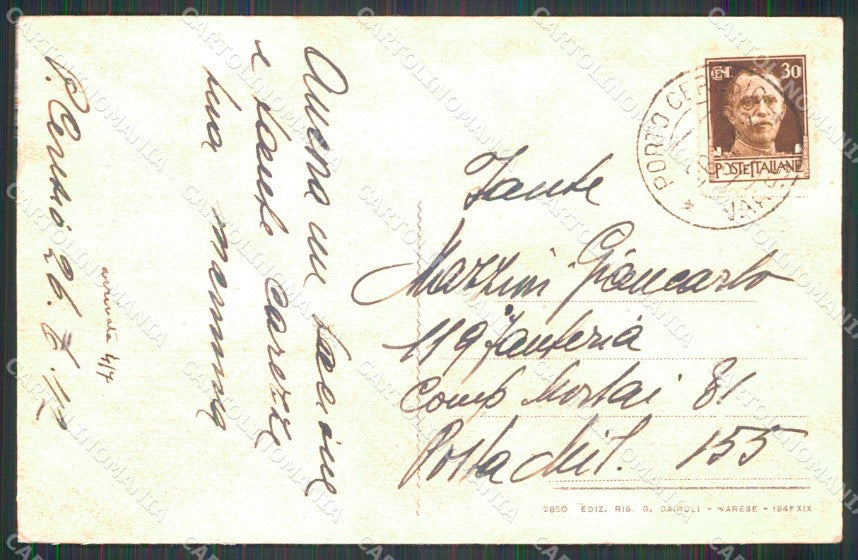 P. Ceresio 26.
arrivata 4/7
Ancora un bacione
e tante carezze
tua mamma
30
POSTE ITALIANE
PORTO CERESIO
VARESE
Fante
Mazzini Giancarlo
119° Fanteria
Comp Mortai 81
Posta Mil. 155
2850 EDIZ. RIS. G. CAIROLI - VARESE - 1941 XIX
CARTOLINOMANIA